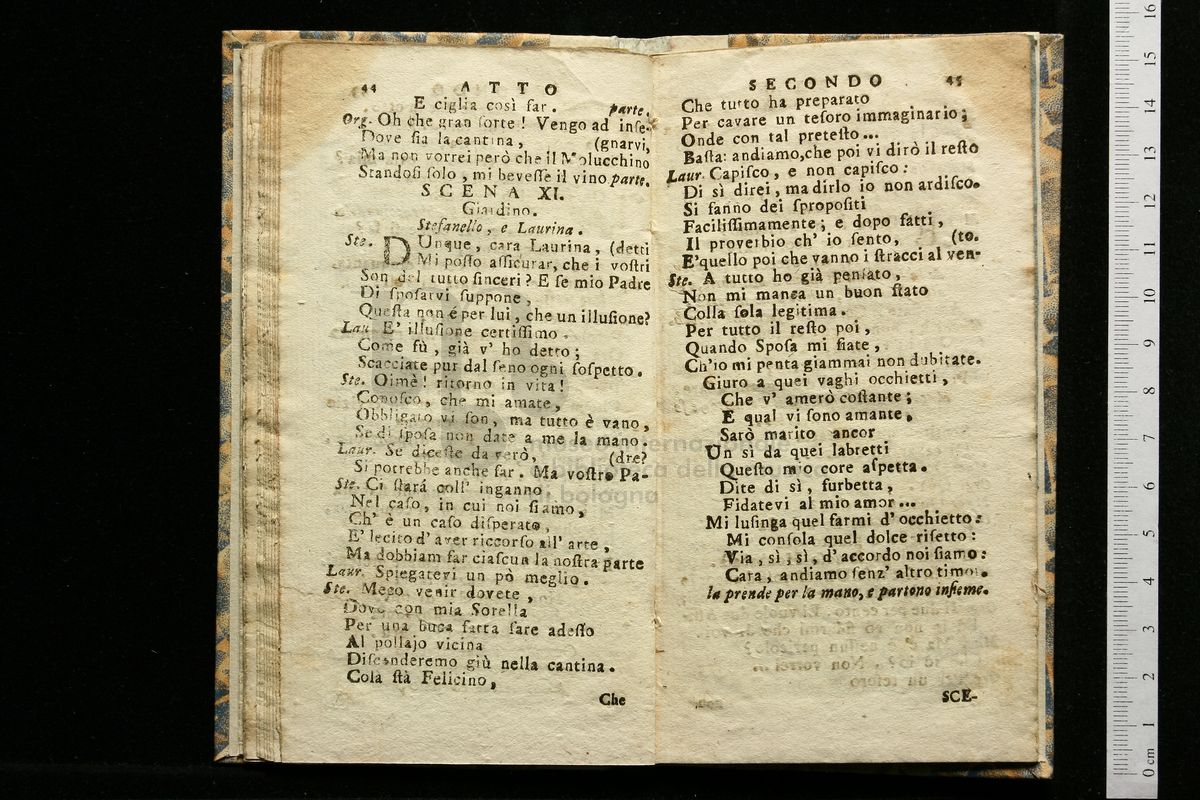 44 ATTO
E ciglia così far. parte.
Org. Oh che gran ſorte! Vengo ad inſe-
Dove ſia la cantina, (gnarvi,
Ma non vorrei però che il Molucchino
Standoſi ſolo, mi beveſſe il vino parte.
SCENA XI.
Giardino.
Stefanello, e Laurina.
Ste. DUnque, cara Laurina, (detti
Mi poſſo aſſicurar, che i voſtri
Son del tutto ſinceri? E ſe mio Padre
Di ſpoſarvi ſuppone,
Queſta non é per lui, che un illuſione?
Lau. E' illuſione certiſſimo.
Come fù, già v' ho detto;
Scacciate pur dal ſeno ogni ſoſpetto.
Ste. Oimè! ritorno in vita!
Conoſco, che mi amate,
Obbligato vi ſon, ma tutto è vano,
Se di ſpoſa non date a me la mano.
Laur. Se diceſte da verò, (dre?
Si potrebbe anche far. Ma voſtro Pa-
Ste. Ci ſtará coll' inganno
Nel caſo, in cui noi ſiamo,
Ch' è un caſo diſperato,
E' lecito d' aver riccorſo all' arte,
Ma dobbiam far ciaſcun la noſtra parte
Laur. Spiegatevi un pò meglio.
Ste. Meco venir dovete,
Dove con mia Sorella
Per una buca fatta fare adeſſo
Al pollajo vicina
Diſcenderemo giù nella cantina.
Cola ſtà Felicino,
Che
SECONDO 45
Che tutto ha preparato
Per cavare un teſoro immaginario;
Onde con tal preteſto...
Baſta: andiamo, che poi vi dirò il reſto
Laur. Capiſco, e non capiſco:
Di sì direi, ma dirlo io non ardiſco.
Si fanno dei ſpropoſiti
Faciliſſimamente; e dopo fatti,
Il proverbio ch' io ſento, (to.
E'quello poi che vanno i ſtracci al ven-
Ste. A tutto ho già penſato,
Non mi manca un buon ſtato
Colla ſola legitima.
Per tutto il reſto poi,
Quando Spoſa mi ſiate,
Ch'io mi penta giammai non dubitate.
Giuro a quei vaghi occhietti,
Che v' amerò coſtante;
E qual vi ſono amante,
Sarò marito ancor
Un sì da quei labretti
Queſto mio core aſpetta.
Dite di sì, furbetta,
Fidatevi al mio amor...
Mi luſinga quel farmi d' occhietto:
Mi conſola quel dolce riſetto:
Via, sì, sì, d' accordo noi ſiamo:
Cara, andiamo ſenz' altro timor.
la prende per la mano, e partono inſieme.
SCE-